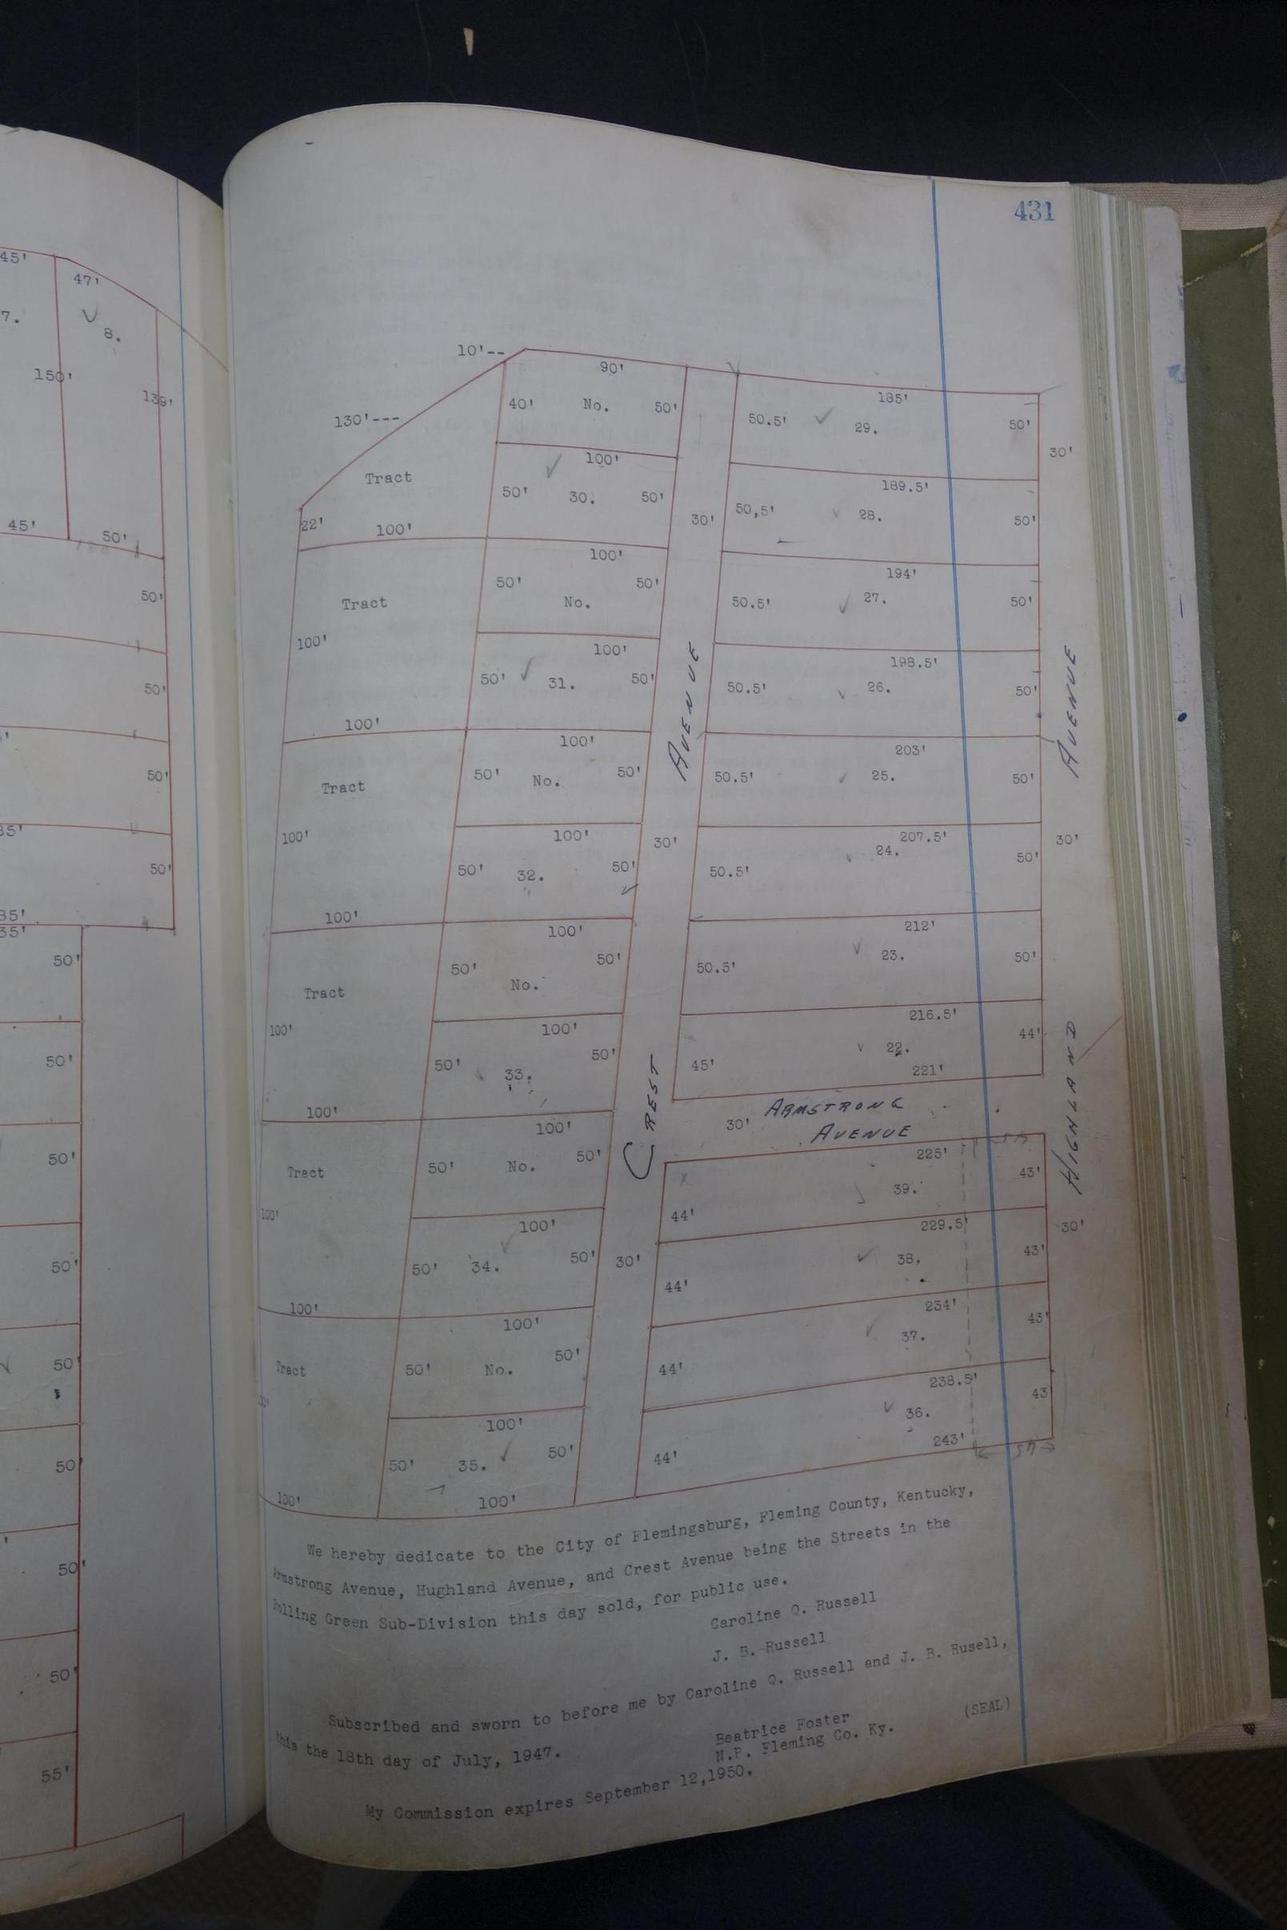 431
45'
47'
7.
8.
150'
139'
45'
50'
50'
50'
50'
50'
50'
50'
50'
50'
50'
50'
50'
50'
55'
10'--
90'
40' No. 50'
130'---
Tract
22'
100'
100'
50' 30. 50'
100'
50' 50'
No.
Tract
100'
100'
50' 31. 50'
100'
100'
50' No. 50'
Tract
100'
100'
50' 32. 50'
100'
100'
50' 50'
No.
Tract
100'
100'
50' 33. 50'
100'
100'
50' No. 50'
Tract
100'
100'
50' 34. 50'
100'
100'
50' No. 50'
Tract
100'
50' 35. 50'
100'
100'
30'
AVENUE
30'
CREST
30'
185'
50.5' 29. 50'
189.5'
50,5' 28. 50'
194'
50.5' 27. 50'
198.5'
50.5' 26. 50'
203'
50.5' 25. 50'
207.5'
50.5' 24. 50'
212'
50.5' 23. 50'
216.5'
45' 22. 44'
221'
30' ARMSTRONG
AVENUE
225'
44' 39. 43'
229.5'
44' 38. 43'
234'
44' 37. 43'
238.5'
44' 36. 43
243'
30'
AVENUE
30'
HIGHLAND
30'
We hereby dedicate to the City of Flemingsburg, Fleming County, Kentucky,
Armstrong Avenue, Hughland Avenue, and Crest Avenue being the Streets in the
Rolling Green Sub-Division this day sold, for public use.
Caroline Q. Russell
J. B. Russell
Subscribed and sworn to before me by Caroline Q. Russell and J. B. Rusell,
this the 18th day of July, 1947.
Beatrice Foster (SEAL)
N.P. Fleming Co. Ky.
My Commission expires September 12,1950.